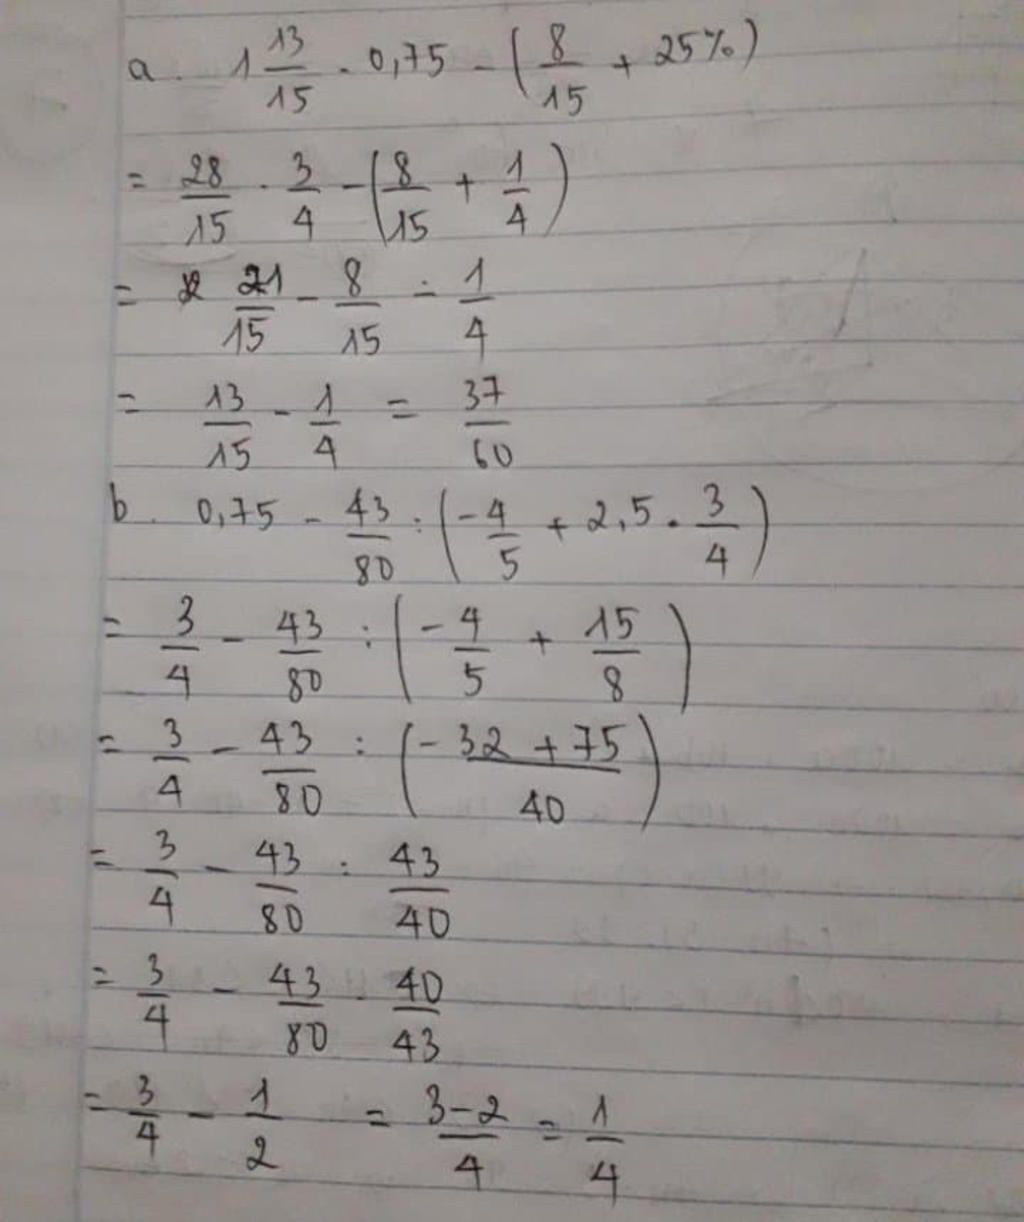 a. 1 13/15 . 0,75 - (8/15 + 25%)
= 28/15 . 3/4 - (8/15 + 1/4)
= 21/15 - 8/15 - 1/4
= 13/15 - 1/4 = 37/60
b. 0,75 - 43/80 : (-4/5 + 2,5 . 3/4)
= 3/4 - 43/80 : (-4/5 + 15/8)
= 3/4 - 43/80 : (-32 + 75/40)
= 3/4 - 43/80 : 43/40
= 3/4 - 43/80 . 40/43
= 3/4 - 1/2 = 3-2/4 = 1/4